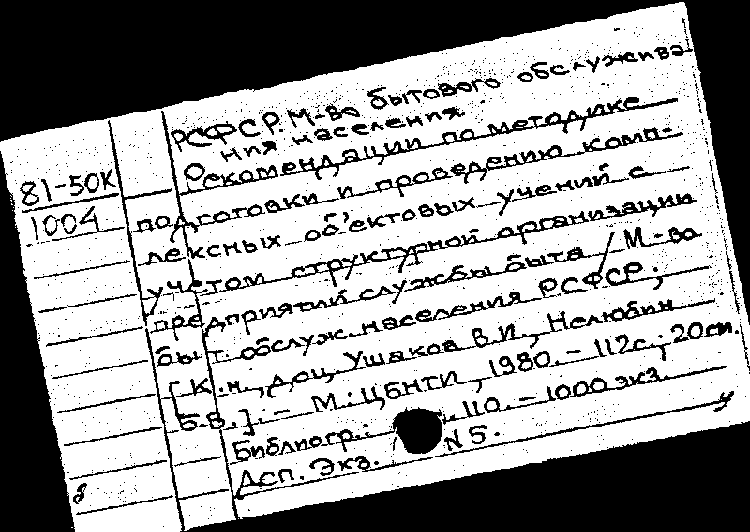 РСФСР. М-во бытового обслужива
ния населения.
81-50К
1004
Рекомендации по методике
подготовки и проведению комп-
лексных объектовых учений с
учетом структурной организации
предприятий службы быта / М-во
быт. обслуж. населения РСФСР;
[К.н., доц. Ушаков В.И., Нелюбин
Б.В.]. - М.: ЦБНТИ, 1980. - 112с.; 20см.
Библиогр.: 110. - 1000 экз.
Дсп. Экз. N 5.